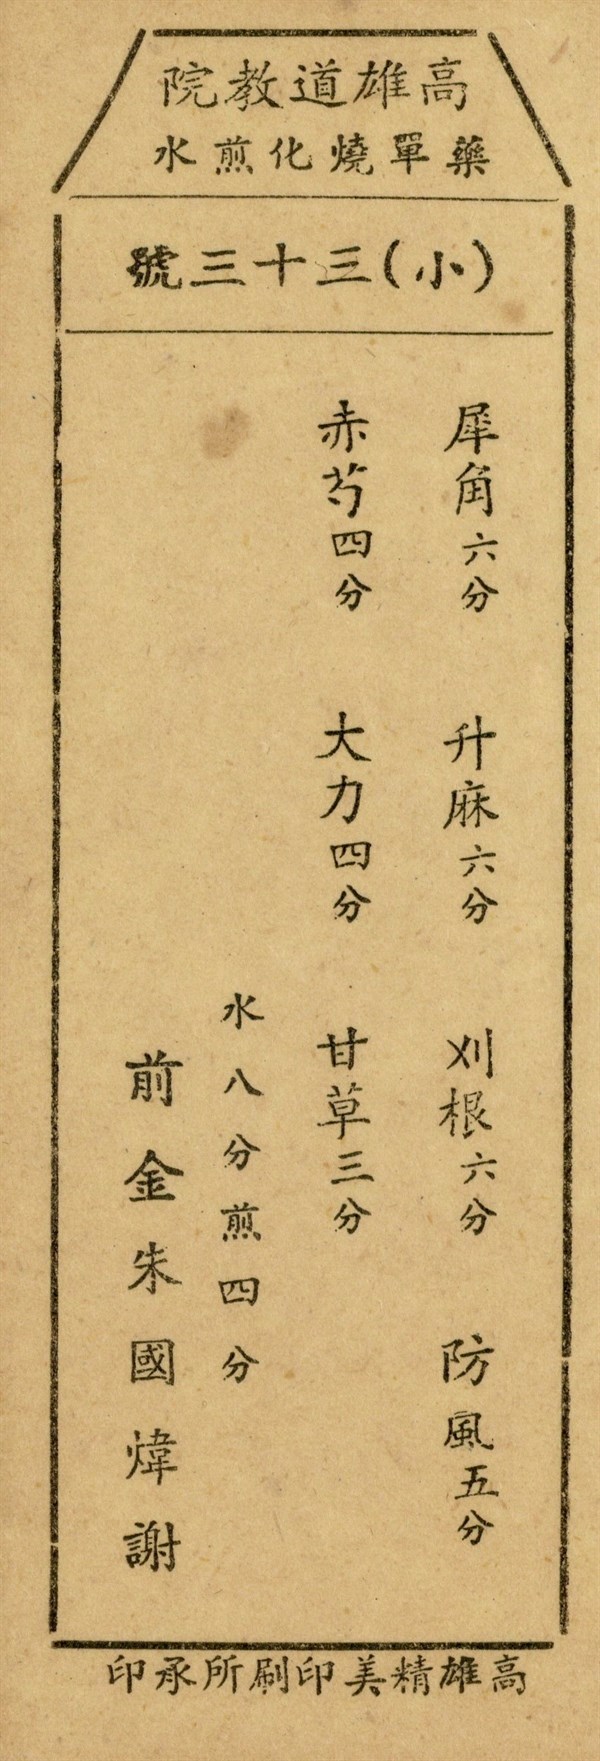 高雄道教院
藥單燒化煎水
(小)三十三號
犀角六分 升麻六分 刈根六分 防風五分
赤芍四分 大力四分 甘草三分
水八分煎四分
前金朱國煒謝
高雄精美印刷所承印